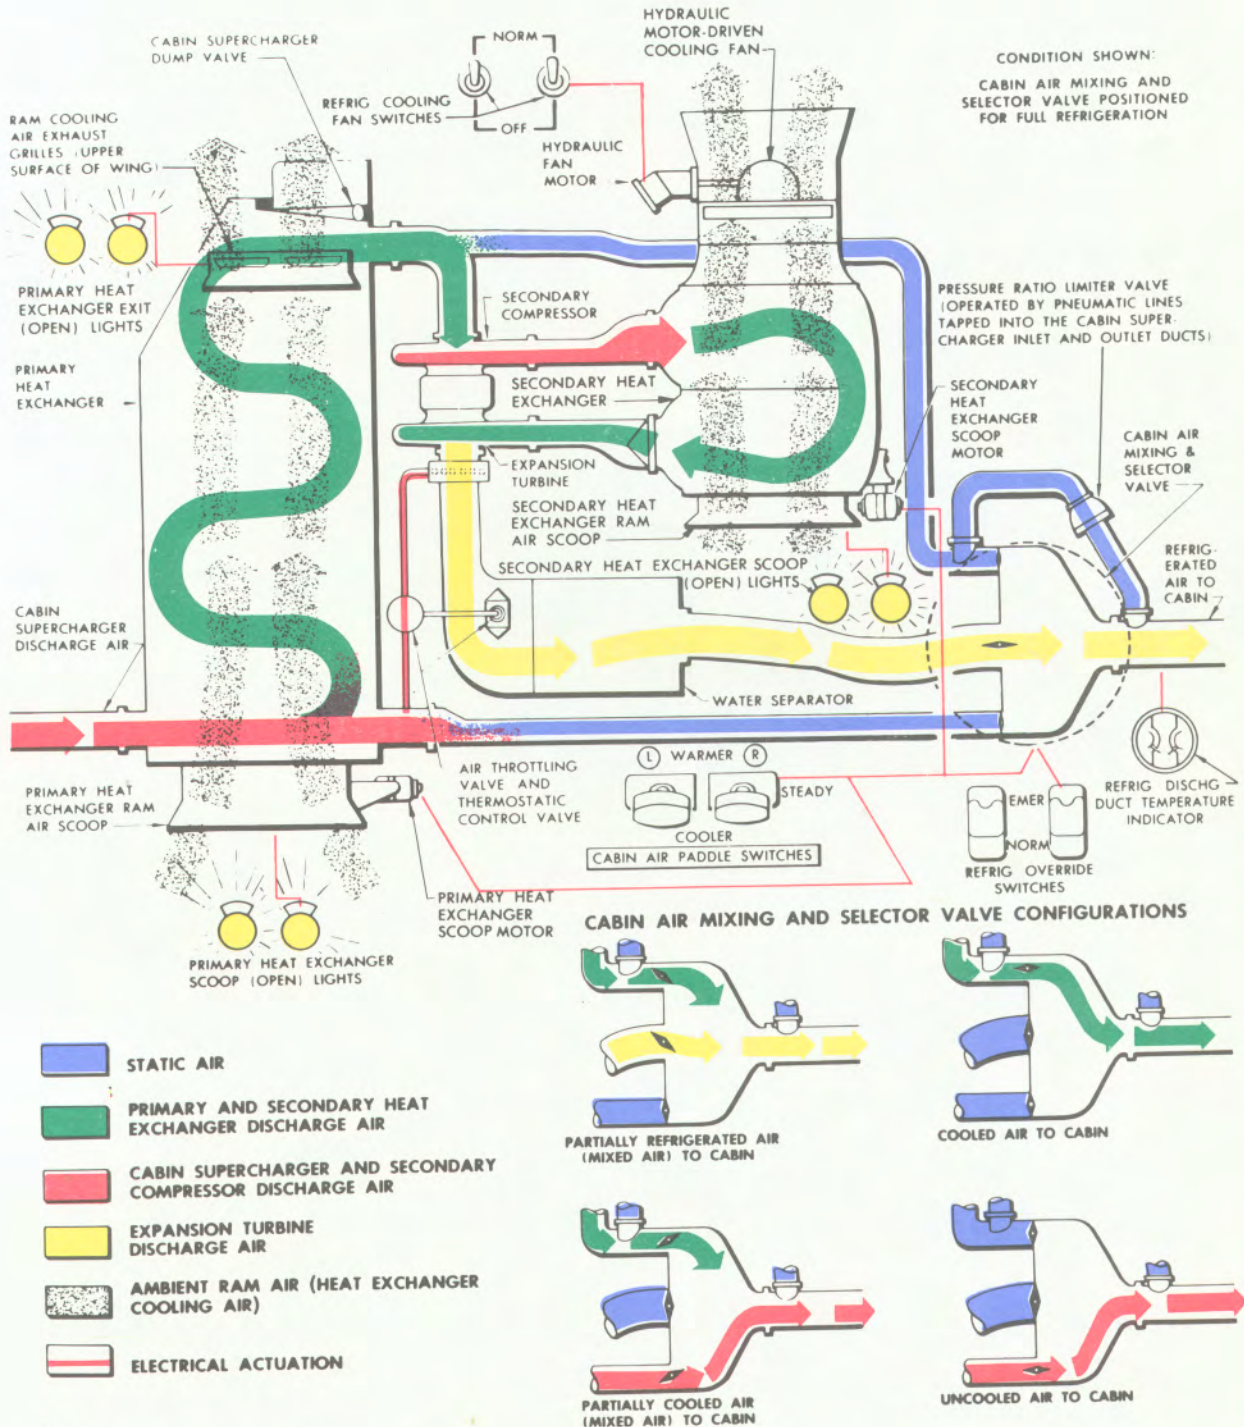 CABIN SUPERCHARGER
DUMP VALVE
NORM
REFRIG COOLING
FAN SWITCHES
OFF
HYDRAULIC
MOTOR-DRIVEN
COOLING FAN
HYDRAULIC
FAN
MOTOR
CONDITION SHOWN:
CABIN AIR MIXING AND
SELECTOR VALVE POSITIONED
FOR FULL REFRIGERATION
RAM COOLING
AIR EXHAUST
GRILLES (UPPER
SURFACE OF WING)
PRIMARY HEAT
EXCHANGER EXIT
(OPEN) LIGHTS
PRIMARY
HEAT
EXCHANGER
SECONDARY
COMPRESSOR
SECONDARY HEAT
EXCHANGER
EXPANSION
TURBINE
SECONDARY HEAT
EXCHANGER RAM
AIR SCOOP
SECONDARY HEAT EXCHANGER SCOOP
(OPEN) LIGHTS
PRESSURE RATIO LIMITER VALVE
(OPERATED BY PNEUMATIC LINES
TAPPED INTO THE CABIN SUPER-
CHARGER INLET AND OUTLET DUCTS)
SECONDARY
HEAT
EXCHANGER
SCOOP
MOTOR
CABIN AIR
MIXING &
SELECTOR
VALVE
REFRIG-
ERATED
AIR TO
CABIN
CABIN
SUPERCHARGER
DISCHARGE AIR
WATER SEPARATOR
PRIMARY HEAT
EXCHANGER RAM
AIR SCOOP
AIR THROTTLING
VALVE AND
THERMOSTATIC
CONTROL VALVE
L WARMER R
STEADY
COOLER
CABIN AIR PADDLE SWITCHES
EMER
NORM
REFRIG OVERRIDE
SWITCHES
REFRIG DISCHG
DUCT TEMPERATURE
INDICATOR
PRIMARY HEAT
EXCHANGER
SCOOP MOTOR
PRIMARY HEAT EXCHANGER
SCOOP (OPEN) LIGHTS
CABIN AIR MIXING AND SELECTOR VALVE CONFIGURATIONS
STATIC AIR
PRIMARY AND SECONDARY HEAT
EXCHANGER DISCHARGE AIR
CABIN SUPERCHARGER AND SECONDARY
COMPRESSOR DISCHARGE AIR
EXPANSION TURBINE
DISCHARGE AIR
AMBIENT RAM AIR (HEAT EXCHANGER
COOLING AIR)
ELECTRICAL ACTUATION
PARTIALLY REFRIGERATED AIR
(MIXED AIR) TO CABIN
COOLED AIR TO CABIN
PARTIALLY COOLED AIR
(MIXED AIR) TO CABIN
UNCOOLED AIR TO CABIN